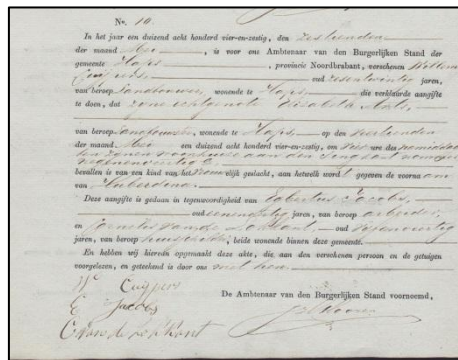 No. 10.
In het jaar een duizend acht honderd vier-en-zestig, den zestienden
der maand Mei, is voor ons Ambtenaar van den Burgerlijken Stand der
gemeente Haps, provincie Noordbrabant, verschenen Willem
Cuijpers oud zesentwintig jaren,
van beroep landbouwer, wonende te Haps die verklaarde aangifte
te doen, dat zijne echtgenote Elisabeth
van beroep landbouwster, wonende te Haps op den
der maand Mei een duizend acht honderd vier-en-zestig, om ure des namiddags
ten zijnen woonhuize aan den nommer
negenenveertig
bevallen is van een kind van het vrouwelijk geslacht, aan hetwelk wordt gegeven de voornaam
van Huberdina
Deze aangifte is gedaan in tegenwoordigheid van Egbertus Jacobs,
oud jaren, van beroep arbeider,
en Cornelis van de Lokkant, oud jaren, van beroep
jaren, van beroep beide wonende binnen deze gemeente.
En hebben wij hiervan opgemaakt deze akte, die, aan den verschenen persoon en de getuigen
voorgelezen, en geteekend is door ons met hen.
W Cuijpers
De Ambtenaar van den Burgerlijken Stand voornoemd,
E Jacobs
C van de Lokkant